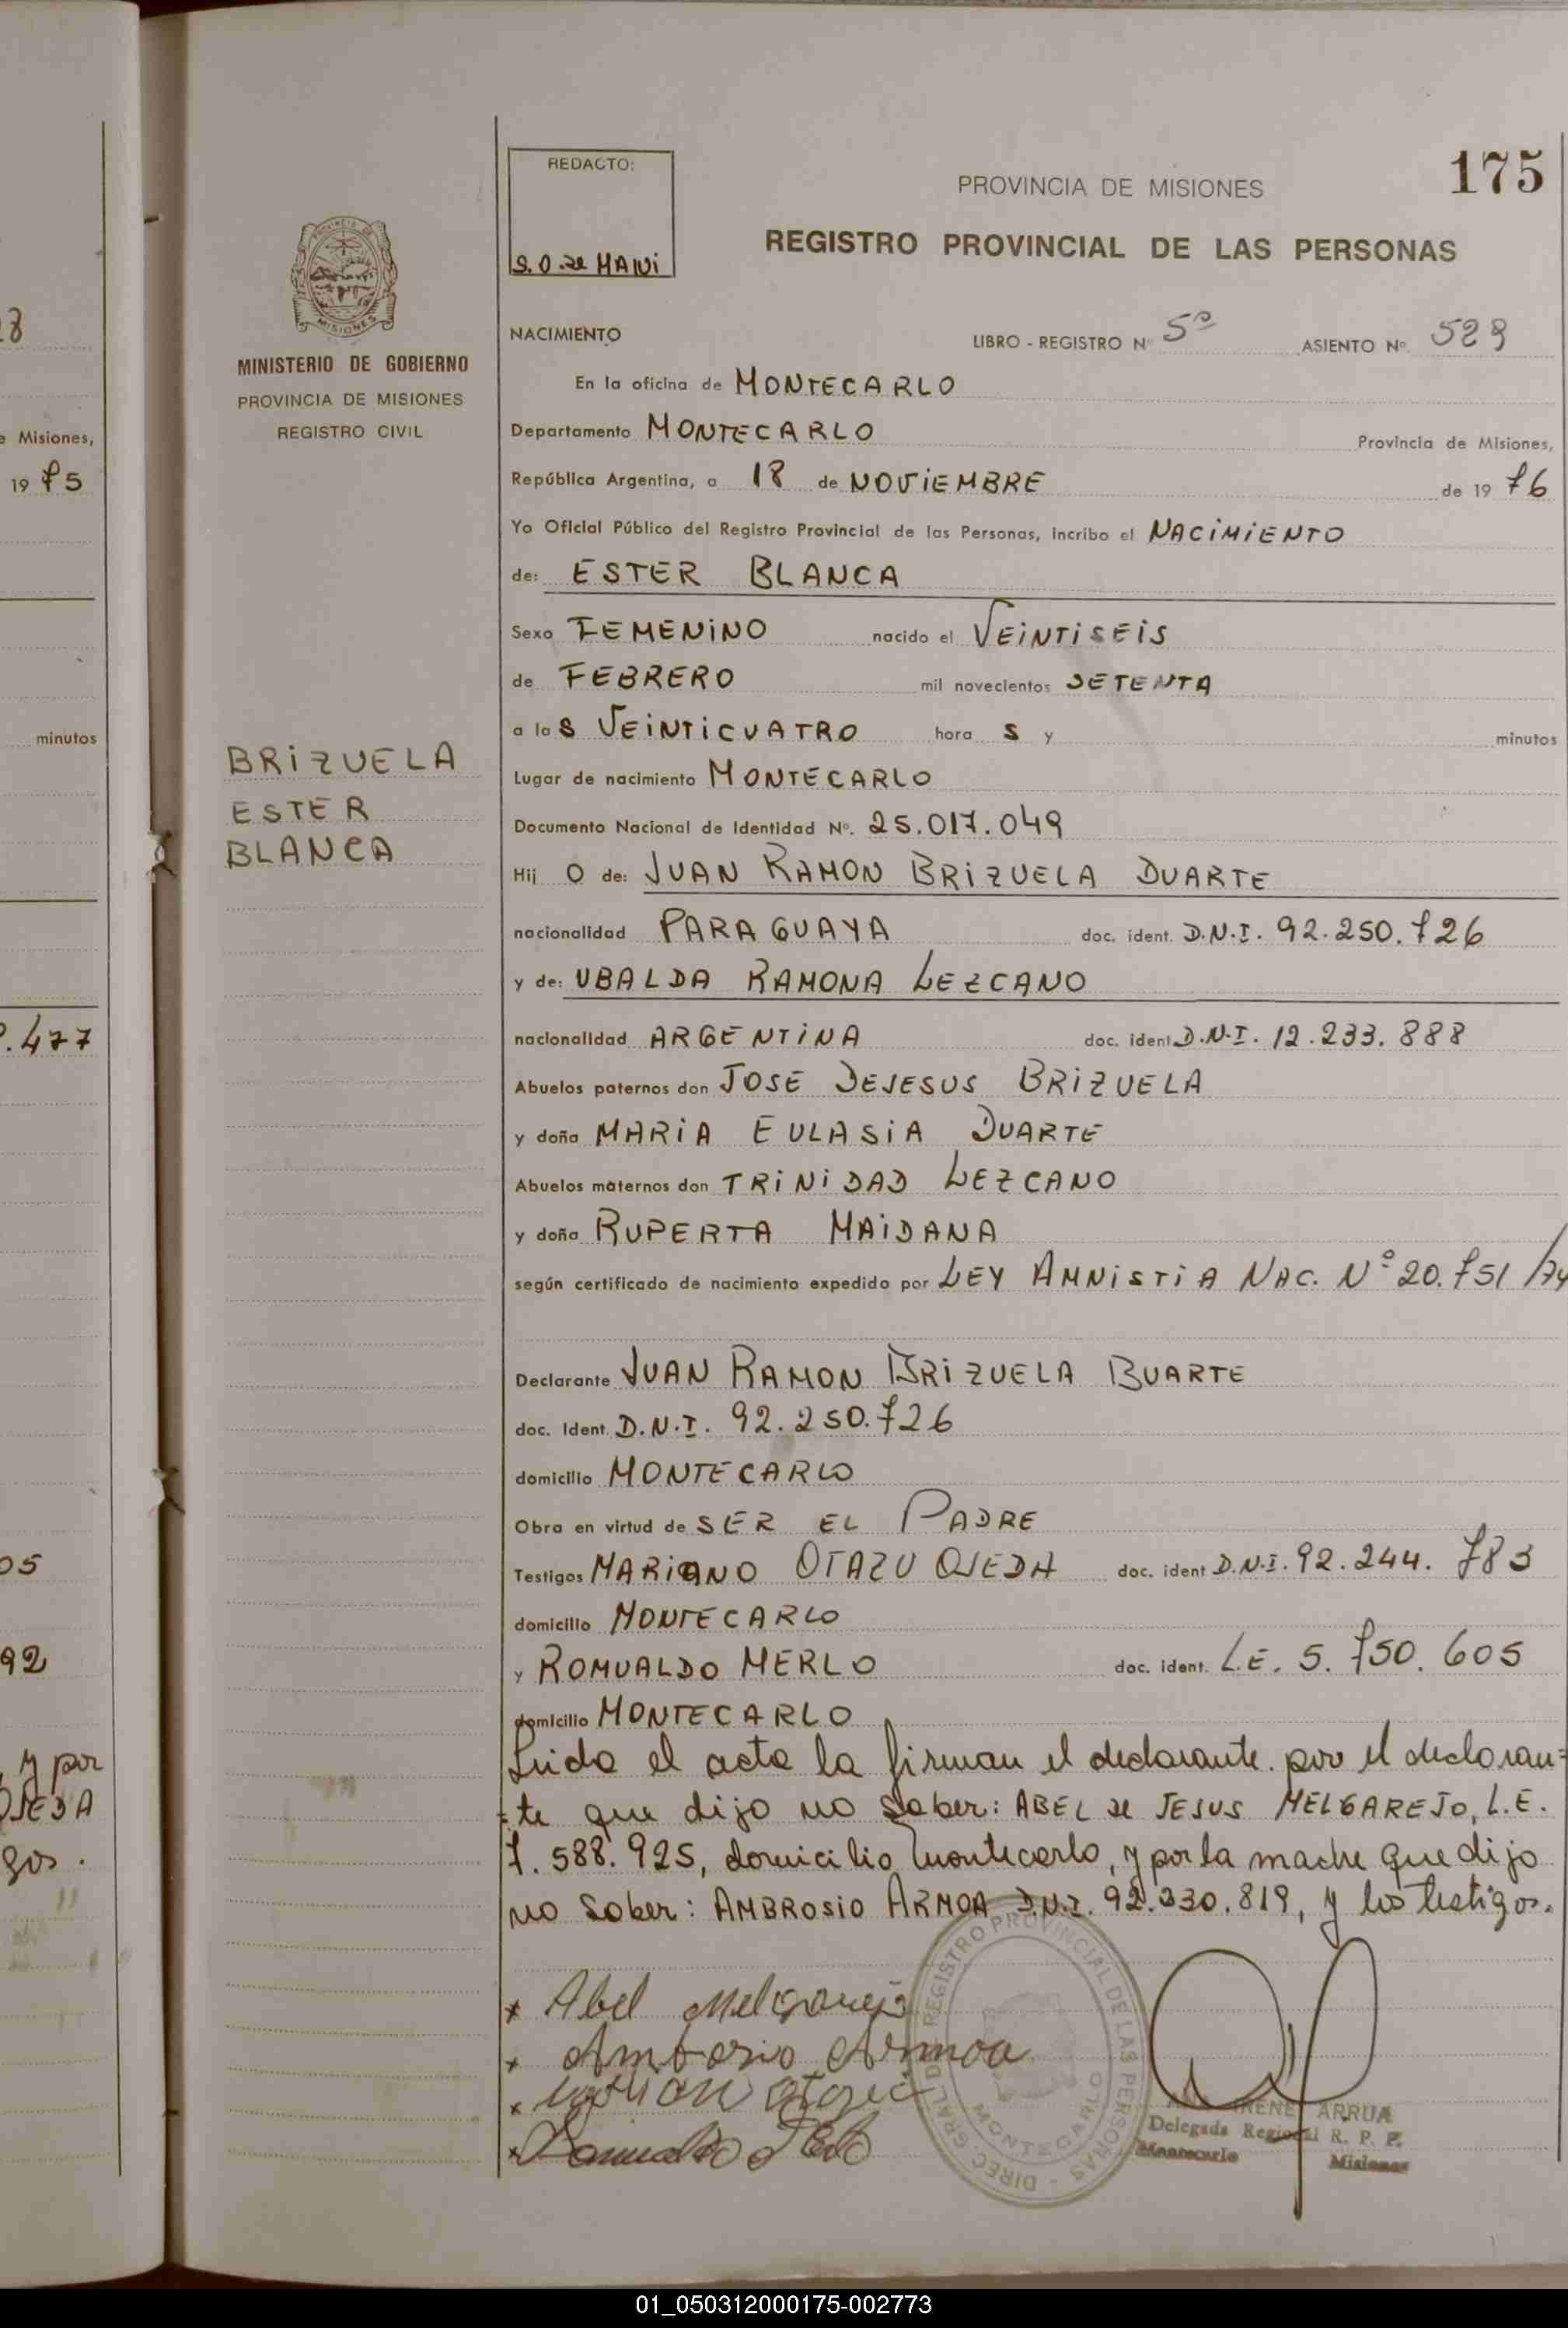 175
REDACTO:
S.O. de MAIDI
PROVINCIA DE MISIONES
REGISTRO PROVINCIAL DE LAS PERSONAS
PROVINCIA DE
MISIONES
MINISTERIO DE GOBIERNO
PROVINCIA DE MISIONES
REGISTRO CIVIL
NACIMIENTO
LIBRO - REGISTRO Nº 5º ASIENTO Nº 529
En la oficina de MONTECARLO
Departamento MONTECARLO Provincia de Misiones,
República Argentina, a 18 de NOVIEMBRE de 19 76
Yo Oficial Público del Registro Provincial de las Personas, incribo el NACIMIENTO
de: ESTER BLANCA
Sexo FEMENINO nacido el VEINTISEIS
de FEBRERO mil novecientos SETENTA
a las VEINTICUATRO hora s y minutos
BRIZUELA
ESTER
BLANCA
Lugar de nacimiento MONTECARLO
Documento Nacional de Identidad Nº. 25.017.049
Hij O de: JUAN RAMON BRIZUELA DUARTE
nacionalidad PARAGUAYA doc. ident. D.N.I. 92.250.726
y de: UBALDA RAMONA LEZCANO
nacionalidad ARGENTINA doc. ident D.N.I. 12.233.888
Abuelos paternos don JOSE DEJESUS BRIZUELA
y doña MARIA EULASIA DUARTE
Abuelos maternos don TRINIDAD LEZCANO
y doña RUPERTA MAIDANA
según certificado de nacimiento expedido por LEY AMNISTIA NAC. Nº 20.751/74
Declarante JUAN RAMON BRIZUELA BUARTE
doc. Ident. D.N.I. 92.250.726
domicilio MONTECARLO
Obra en virtud de SER EL PADRE
Testigos MARIANO OTAZU OJEDA doc. ident D.N.I. 92.244.783
domicilio MONTECARLO
y ROMUALDO MERLO doc. ident. L.E. 5.750.605
domicilio MONTECARLO
Leida el acta la firman el declarante. por el declaran=
=te que dijo no saber: ABEL de JESUS MELGAREJO, L.E.
7.588.925, domicilio Montecarlo, y por la madre que dijo
no saber: AMBROSIO ARMOA D.N.I. 92.330.819, y los testigos.
x Abel Melgarejo
x Ambrosio Armoa
DIREC. GRAL. DEL REGISTRO PROVINCIAL DE LAS PERSONAS - MONTECARLO
IRENE ARRUA
Delegada Regional R. P. P.
Montecarlo Misiones
e Misiones,
19 75
minutos
.477
05
92
y por
OJEDA
gos.
01_050312000175-002773